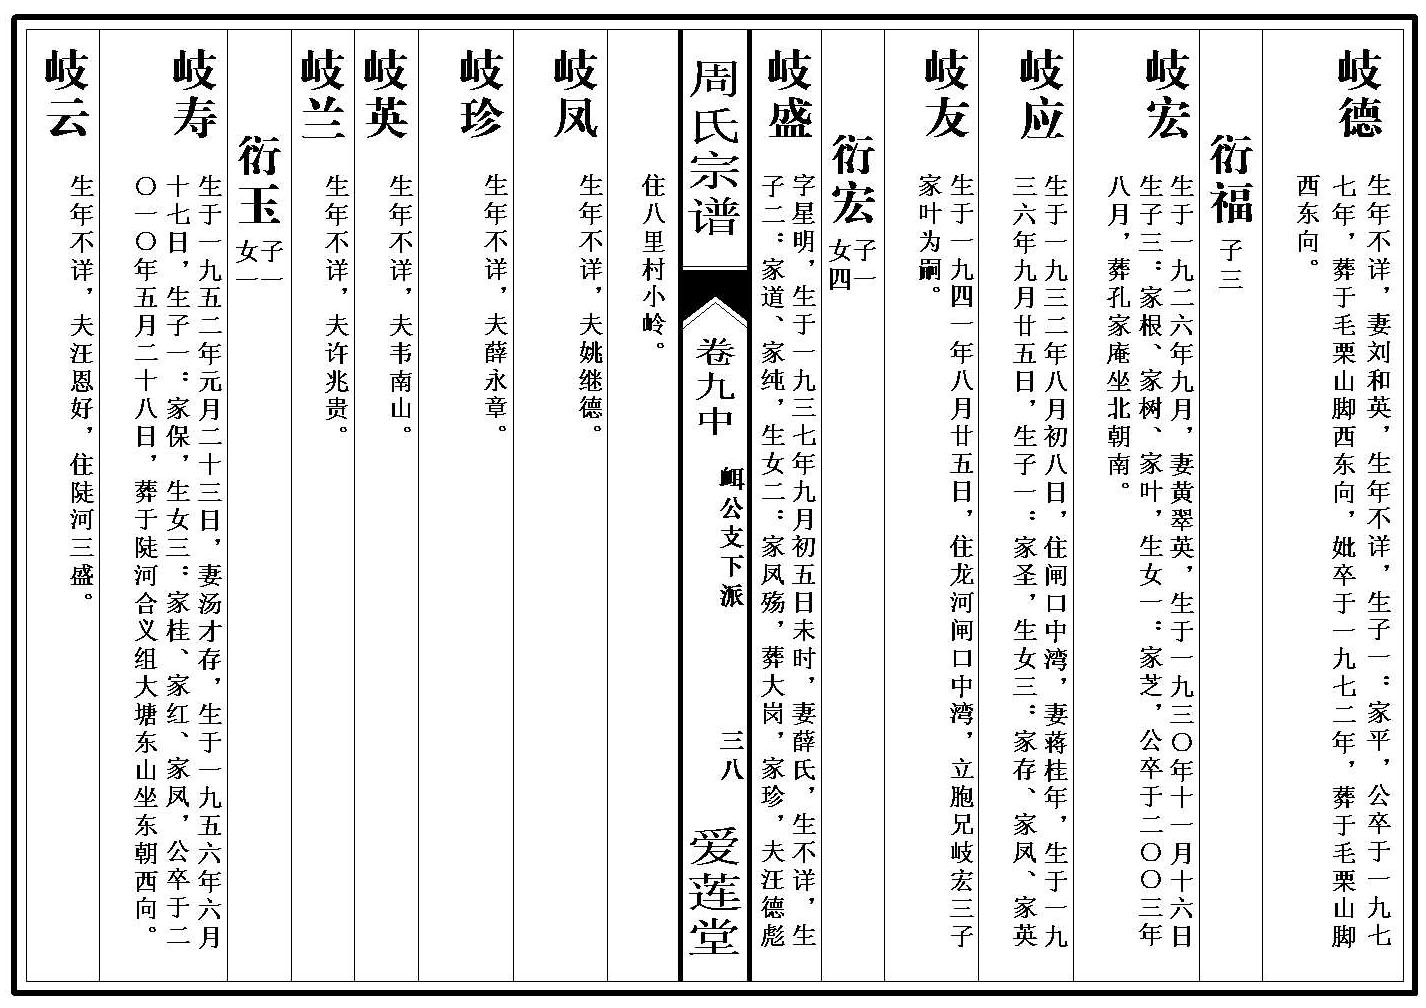 岐德
生年不详，妻刘和英，生年不详，生子一：家平，公卒于一九七
七年，葬于毛栗山脚西东向，妣卒于一九七二年，葬于毛栗山脚
西东向。
衍福 子三
岐宏
生于一九二六年九月，妻黄翠英，生于一九三〇年十一月十六日
生子三：家根、家树、家叶，生女一：家芝，公卒于二〇〇三年
八月，葬孔家庵坐北朝南。
岐应
生于一九三二年八月初八日，住闸口中湾，妻蒋桂年，生于一九
三六年九月廿五日，生子一：家圣，生女三：家存、家凤、家英
岐友
生于一九四一年八月廿五日，住龙河闸口中湾，立胞兄岐宏三子
家叶为嗣。
衍宏 子一
女四
岐盛
字星明，生于一九三七年九月初五日未时，妻薛氏，生不详，生
子二：家道、家纯，生女二：家凤殇，葬大岗，家珍，夫汪德彪
周氏宗谱
卷九中
岬公支下派
三八
爱莲堂
住八里村小岭。
岐凤
生年不详，夫姚继德。
岐珍
生年不详，夫薛永章。
岐英
生年不详，夫韦南山。
岐兰
生年不详，夫许兆贵。
衍玉 子一
女一
岐寿
生于一九五二年元月二十三日，妻汤才存，生于一九五六年六月
十七日，生子一：家保，生女三：家桂、家红、家凤，公卒于二
〇一〇年五月二十八日，葬于陡河合义组大塘东山坐东朝西向。
岐云
生年不详，夫汪恩好，住陡河三盛。